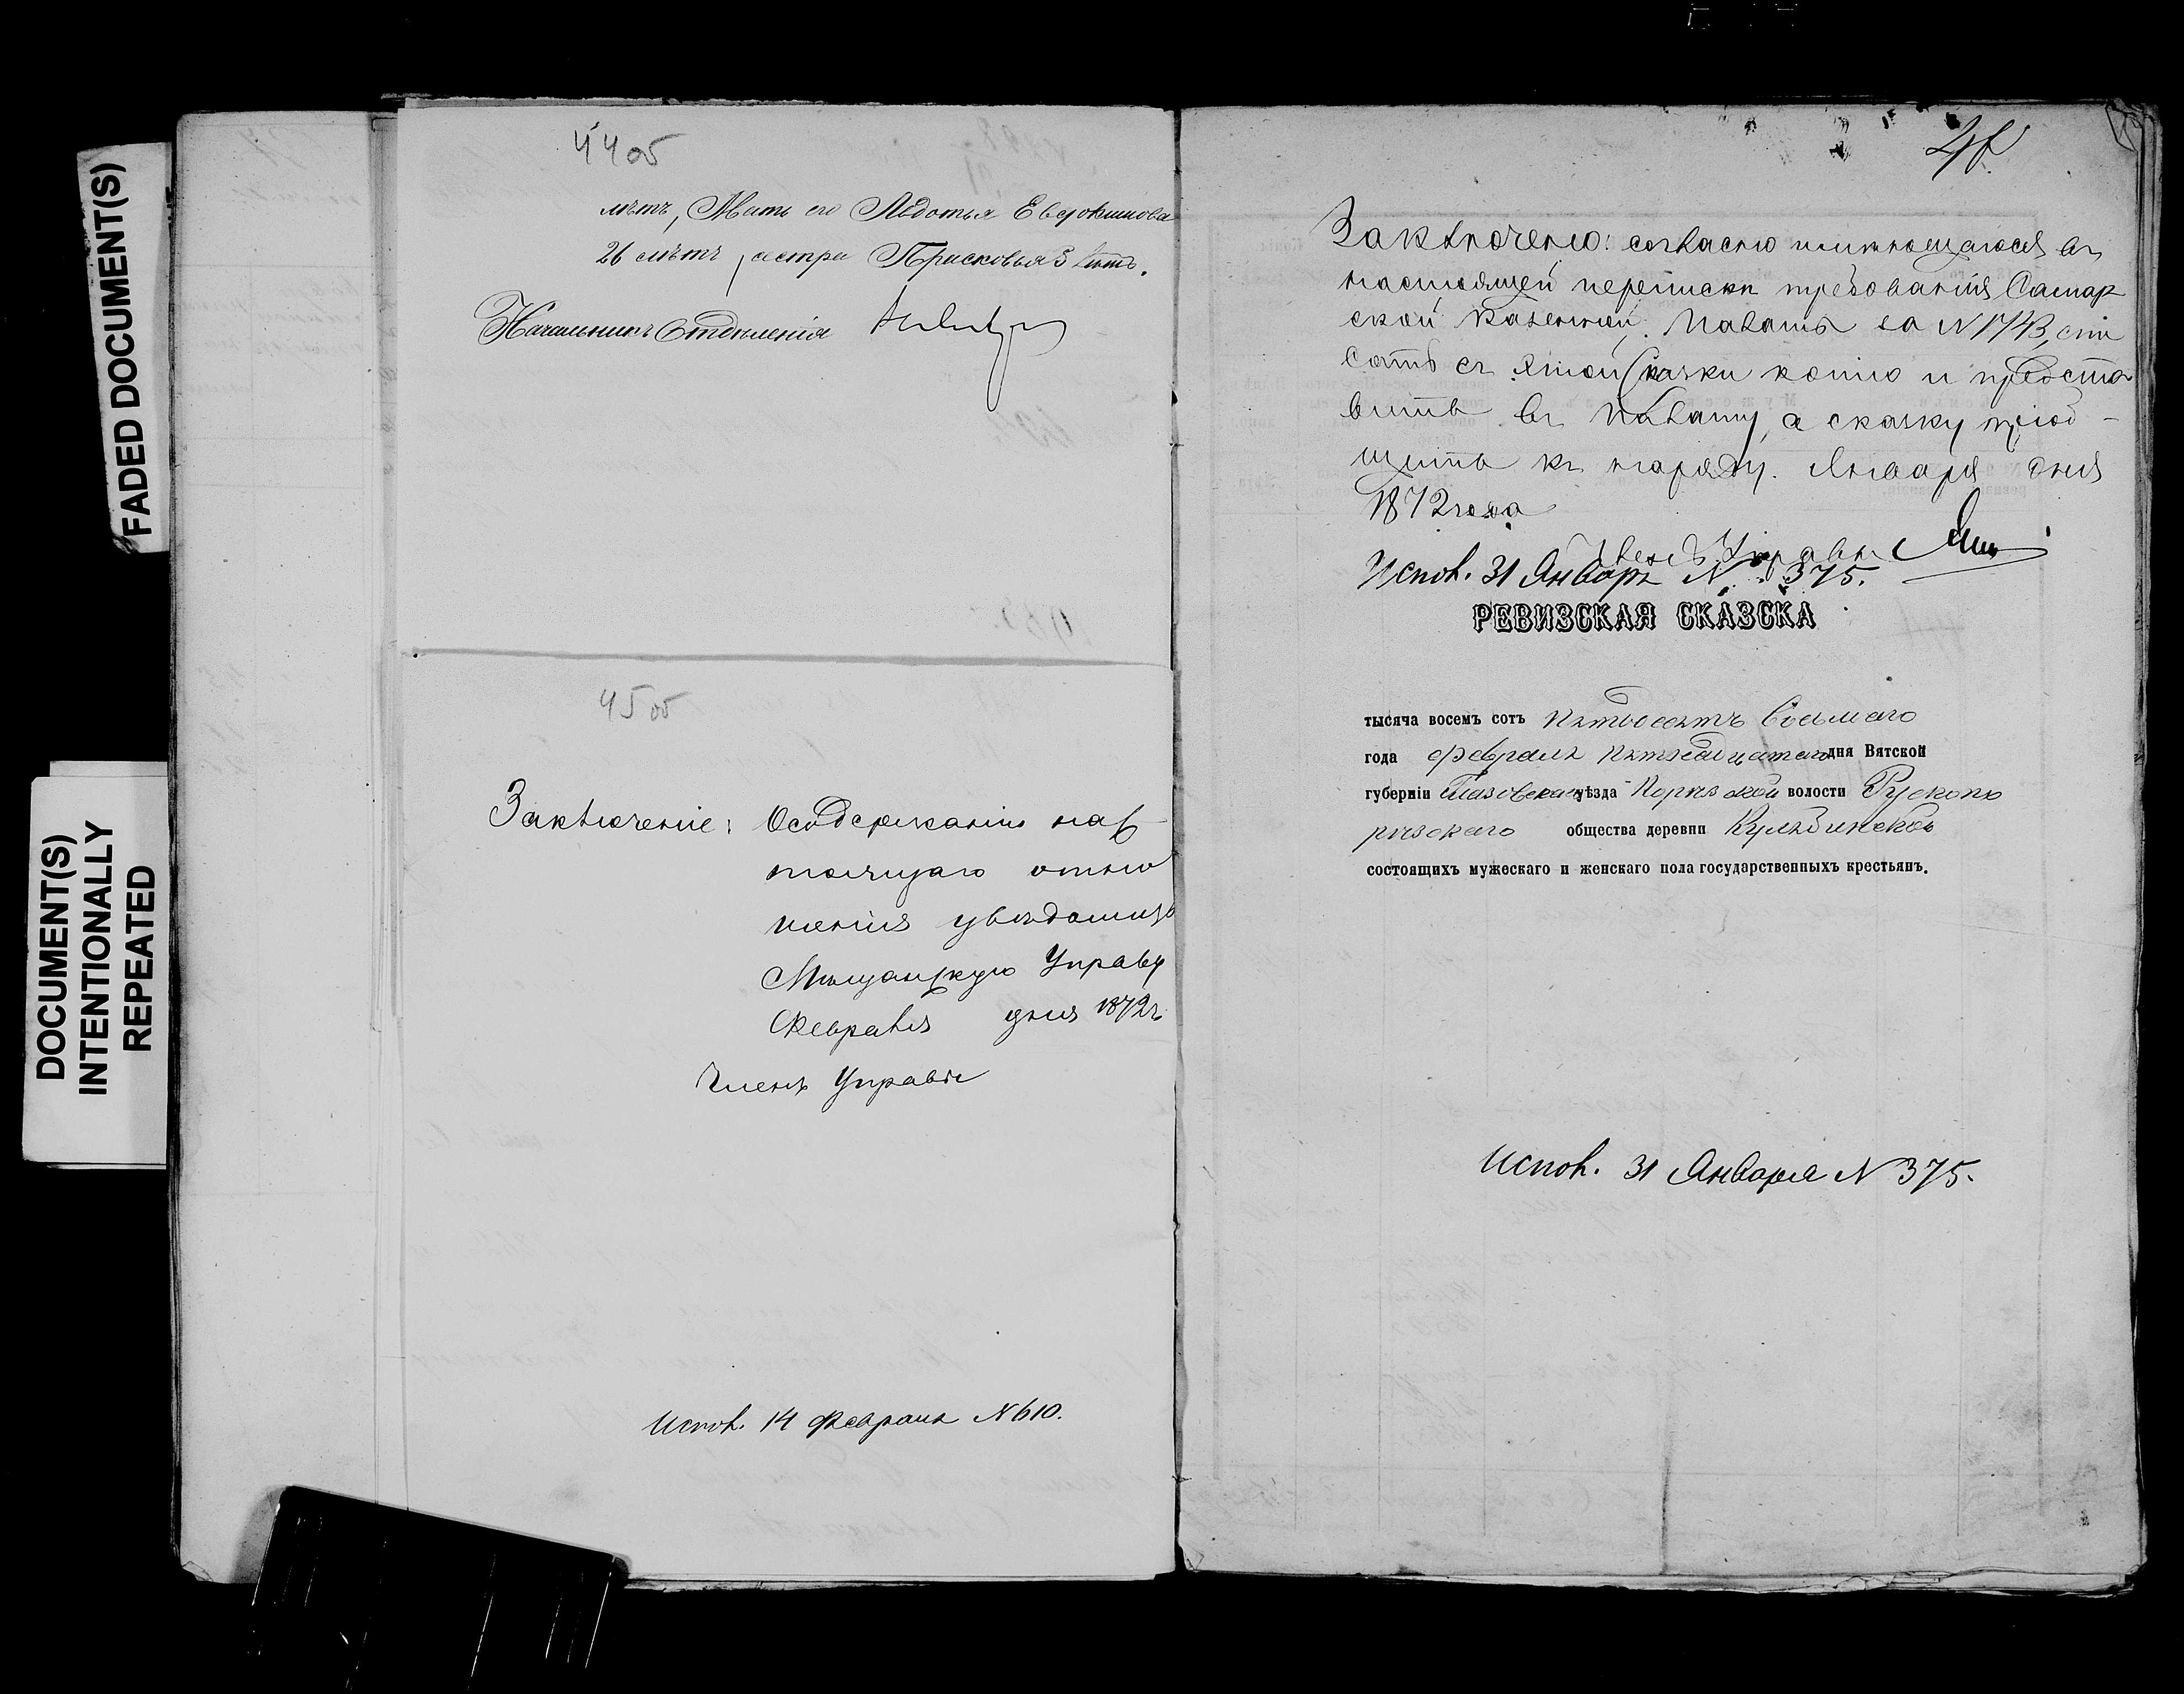 FADED DOCUMENT(S)
DOCUMENT(S)
INTENTIONALLY
REPEATED
44об
лѣтъ, Мать его Авдотья Евдокимова
26 лѣтъ, сестра Прасковья 3 лѣтъ.
Начальникъ Отдѣленія
45об
Заключеніе: О содержаніи нас-
тоящаго отно
шенія увѣдомить
Мѣщанскую Управу
Февраля дня 1872 г.
Членъ Управы
Испол. 14 Февраля N 610.
Заключено: согласно имѣющагося въ
настоящей переписки требованія Самар
ской Казенной Палаты за N 1743, спи
сать съ этой Сказки копію и предста
вить въ Палату, а сказку пріоб-
щить къ наряду. Января дня
1872 года
Членъ Управы
Испол. 31 Января N 375.
РЕВИЗСКАЯ СКАЗСКА
тысяча восемъ сотъ пятьдесятъ восьмаго
года февраля пятнадцатаго дня Вятской
губерніи Глазовскаго уѣзда Порѣзской волости Рускопо
рѣзскаго общества деревни
состоящихъ мужескаго и женскаго пола государственныхъ крестьянъ.
Испол. 31 Января N 375.